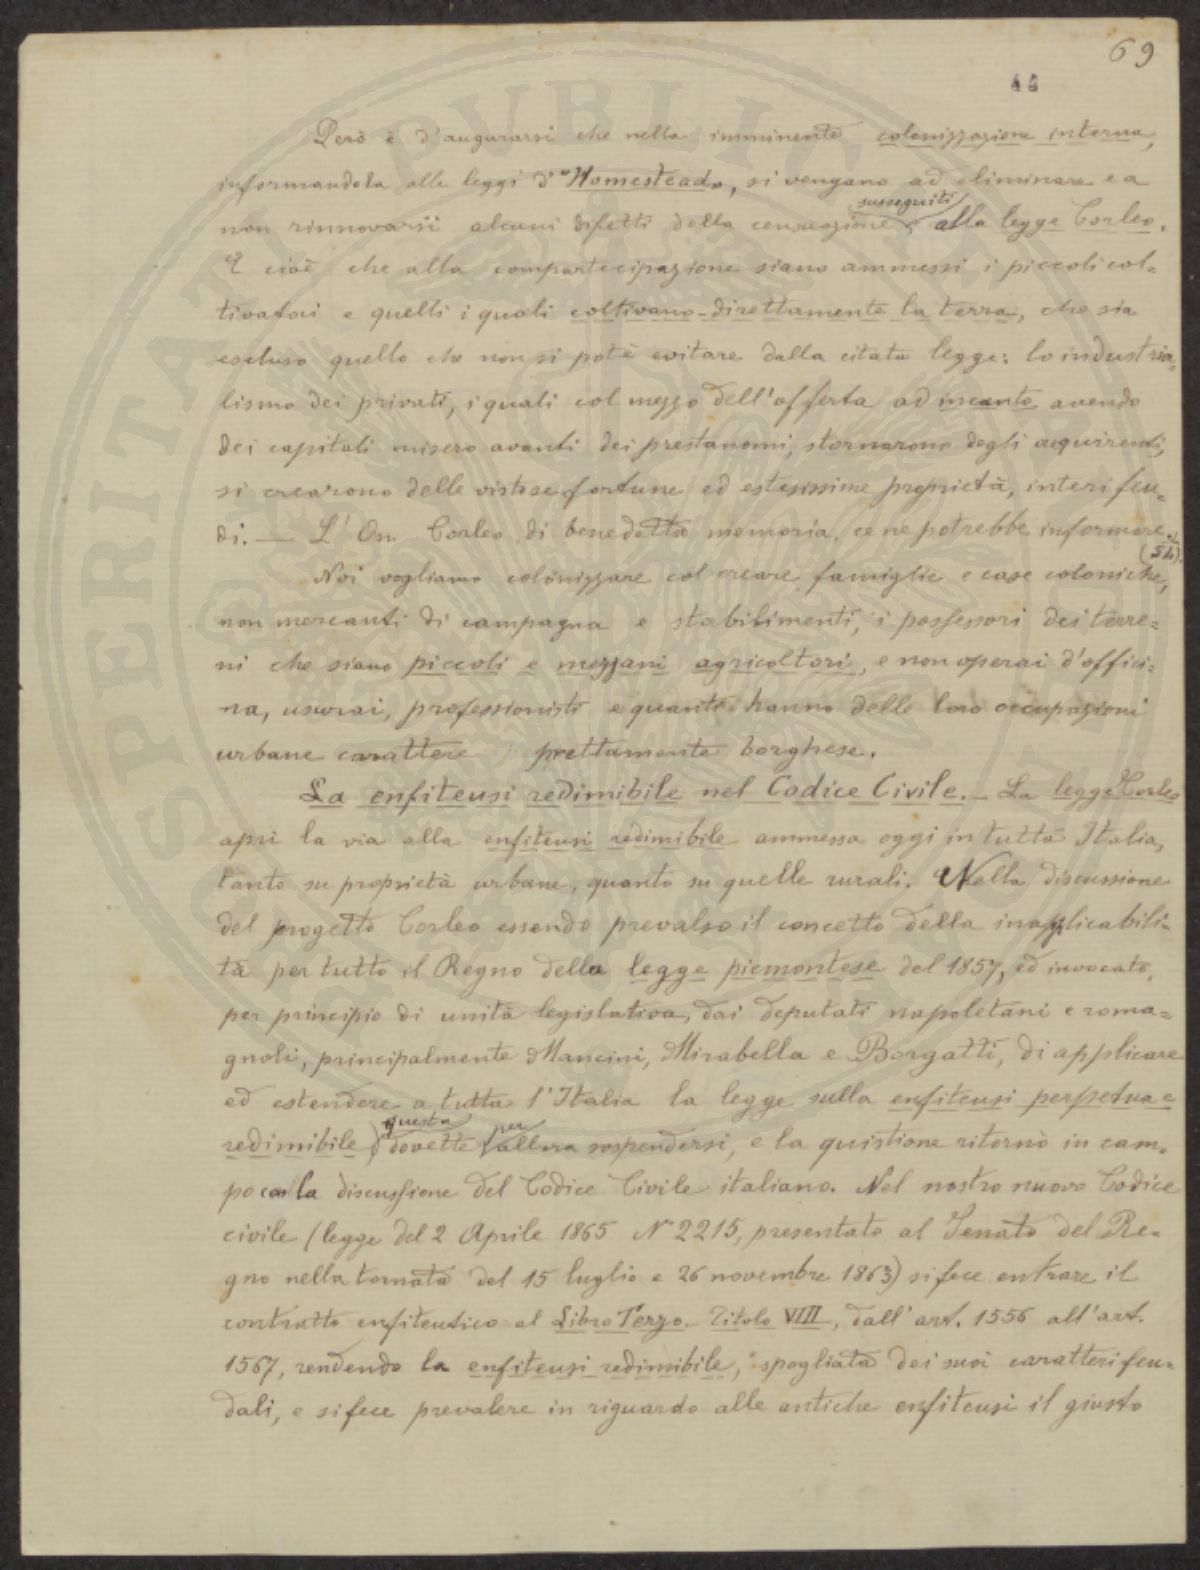 69
Però è d'augurarsi che nella imminente colonizzazione interna,
informandola alle leggi d'"Homestead", si vengano ad eliminare e a
susseguiti
non rinnovarsi alcuni difetti della censuazione alla legge Corleo.
E cioè che alla compartecipazione siano ammessi i piccoli col=
tivatori e quelli i quali coltivano direttamente la terra, che sia
escluso quello che non si potè evitare dalla citata legge: lo industria=
lismo dei privati, i quali col mezzo dell'offerta ad incanto avendo
dei capitali misero avanti dei prestanomi, stornarono degli acquirenti,
si crearono delle vistose fortune ed estesissime proprietà, interi feu=
di. — L'On. Corleo di benedetta memoria, ce ne potrebbe informare.
Noi vogliamo colonizzare col creare famiglie e case coloniche,
non mercanti di campagna e stabilimenti, i possessori dei terre=
ni che siano piccoli e mezzani agricoltori, e non operai d'offici=
na, usurai, professionisti e quanti hanno delle loro occupazioni
urbane carattere prettamente borghese.
La enfiteusi redimibile nel Codice Civile. — La legge Corleo
aprì la via alla enfiteusi redimibile ammessa oggi in tutta Italia,
tanto su proprietà urbane, quanto su quelle rurali. Nella discussione
del progetto Corleo essendo prevalso il concetto della inapplicabili=
tà per tutto il Regno della legge piemontese del 1857, ed invocato,
per principio di unità legislativa, dai deputati napoletani e roma=
gnoli, principalmente Mancini, Mirabella e Borgatti, di applicare
ed estendere a tutta l'Italia la legge sulla enfiteusi perpetua e
questa per
redimibile, dovette allora sospendersi, e la quistione ritornò in cam=
po con la discussione del Codice Civile italiano. Nel nostro nuovo Codice
civile (legge del 2 Aprile 1865 N° 2215, presentato al Senato del Re=
gno nella tornata del 15 luglio e 26 novembre 1863) si fece entrare il
contratto enfiteutico al Libro Terzo. Titolo VIII, dall'art. 1556 all'art.
1567, rendendo la enfiteusi redimibile, spogliata dei suoi caratteri feu=
dali, e si fece prevalere in riguardo alle antiche enfiteusi il giusto